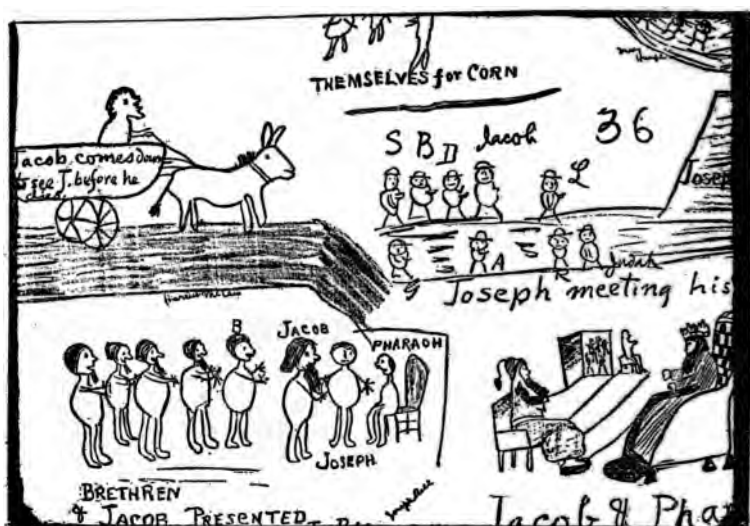 THEMSELVES for CORN
Jacob comes down
to see J. before he
dies.
S B D Jacob 36
L
Joseph
G A R Judah
Joseph meeting his
B
JACOB
PHARAOH
JOSEPH
BRETHREN
& JACOB PRESENTED
Jacob & Pha